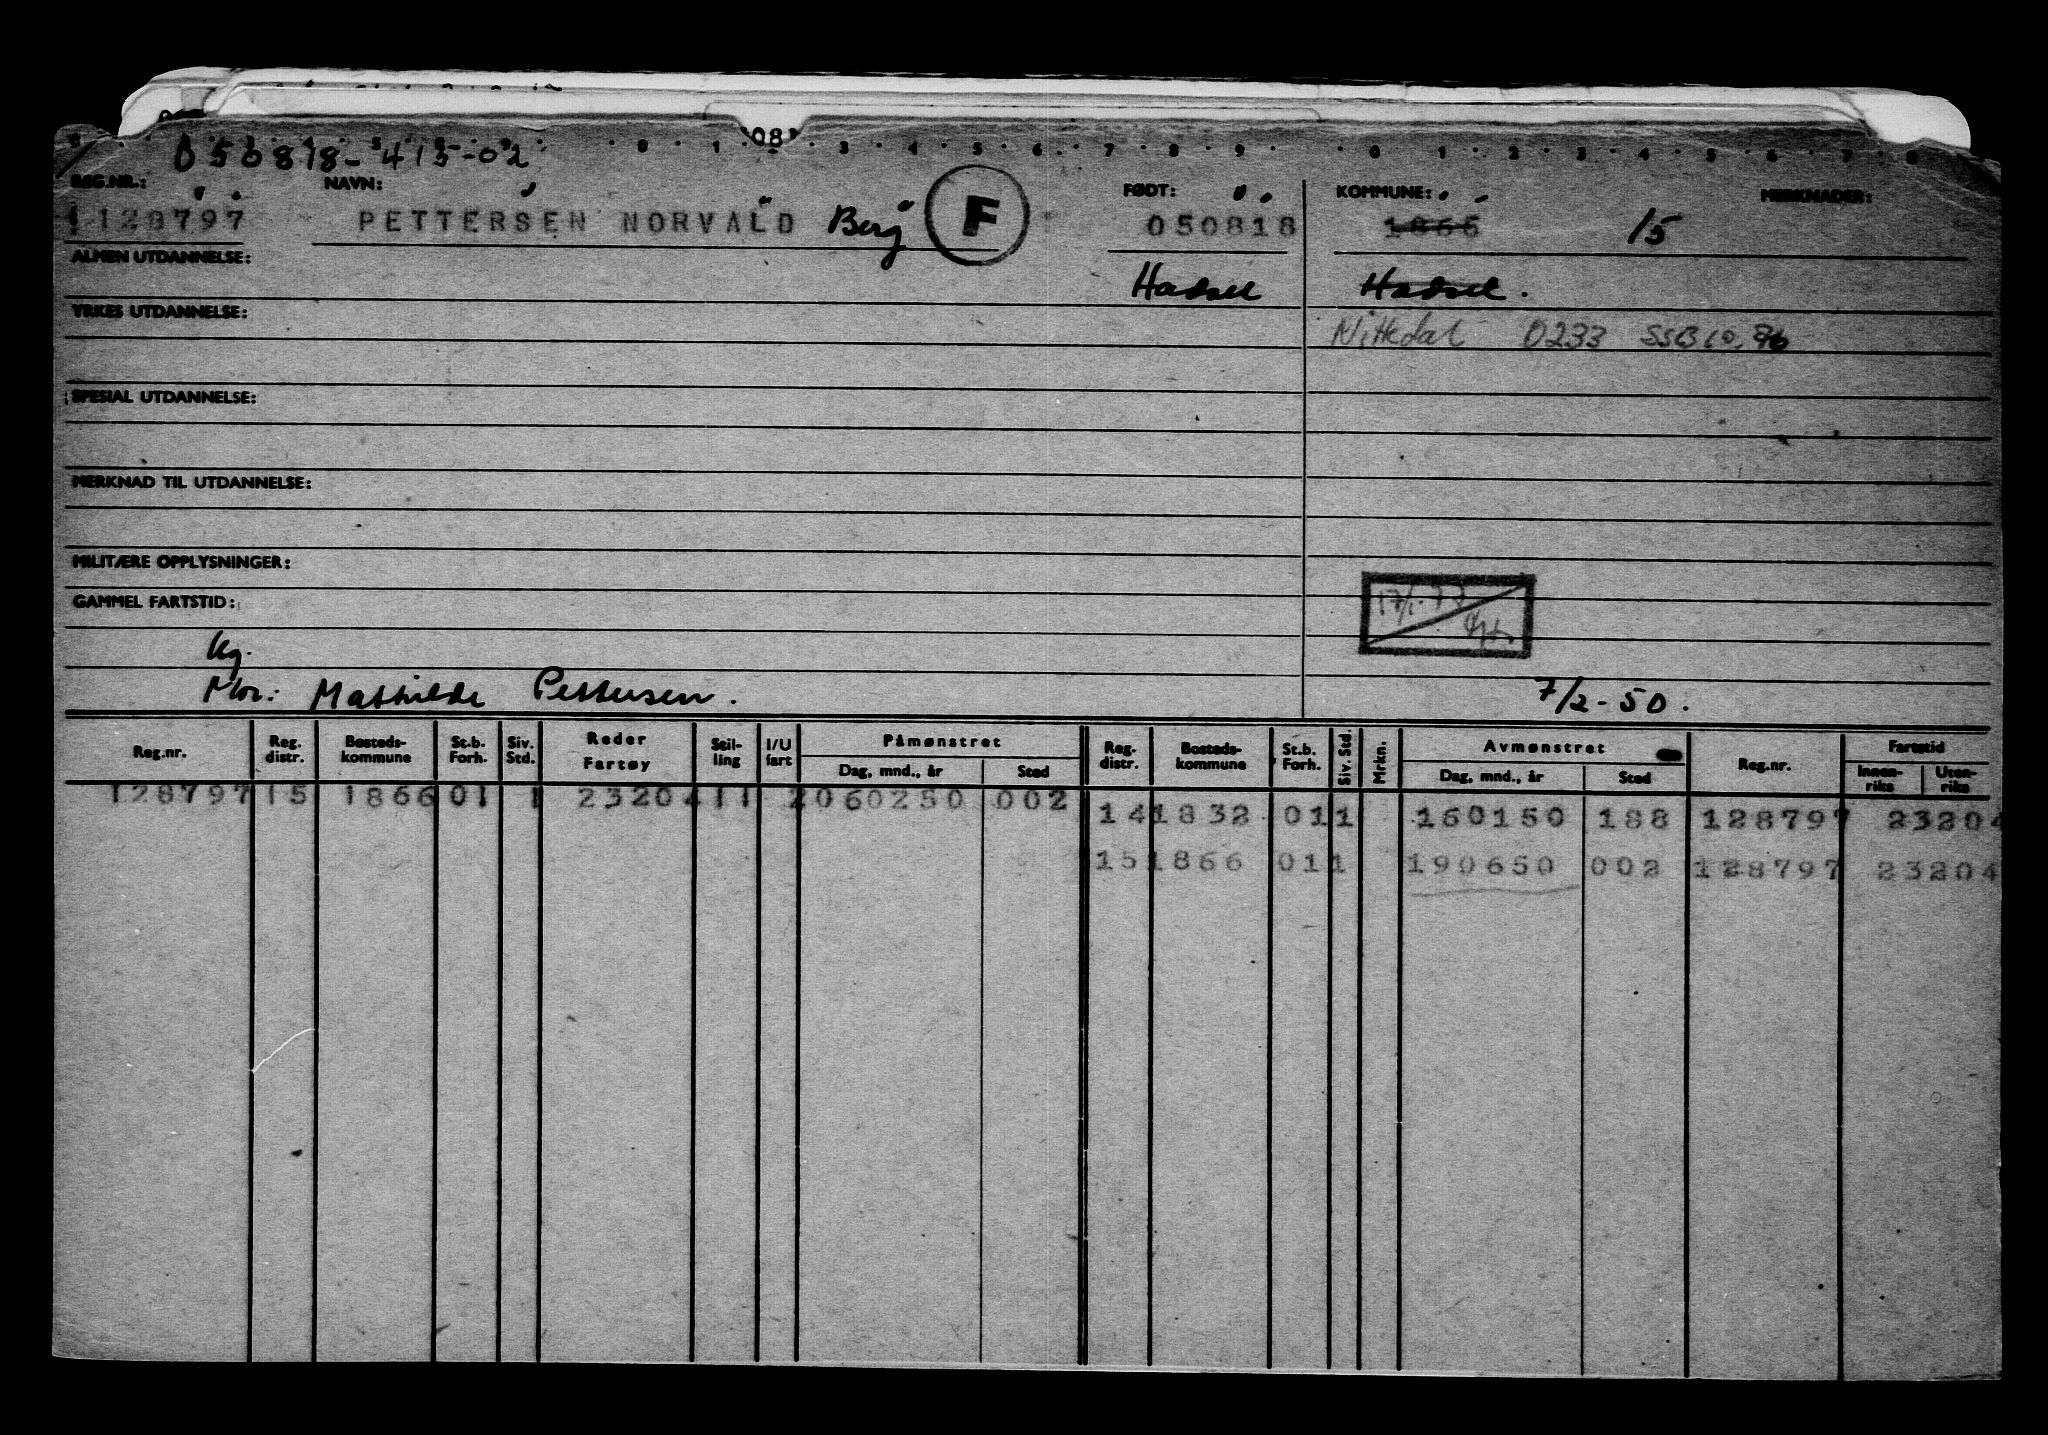 08
050818-415-02
0 1 3 4 5 6 7 8 9 0 1 2 3 4 5 6 7 8
REG.NR.: NAVN: FØDT: KOMMUNE: MERKNADER:
128797 PETTERSEN NORVALD Berg F 050818 1865 15
ALMEN UTDANNELSE:
Hadsel Hadsel.
YRKES UTDANNELSE:
Nittedal 0233 SSB 10.76
SPESIAL UTDANNELSE:
MERKNAD TIL UTDANNELSE:
MILITÆRE OPPLYSNINGER:
GAMMEL FARTSTID:
17/1-77
Ug.
Mor: Mathilde Pettersen. 7/2-50.
Reg.nr. Reg. distr. Bosteds-kommune St.b. Forh. Siv. Std. Reder Fartøy Stil-ling I/U fart Påmønstret Dag, mnd., år Sted Reg. distr. Bosteds-kommune St.b. Forh. Siv. Std. Mrkn. Avmønstret Dag, mnd., år Sted Reg.nr. Fartstid Innen-riks Uten-riks
128797 15 1866 01 1 23204 11 2 060250 002
14 1832 01 1 160150 188 128797 23204
15 1866 01 1 190650 002 128797 23204